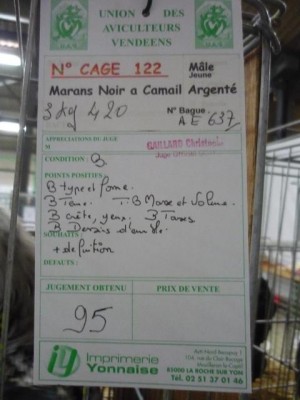 UNION DES
AVICULTEURS
VENDEENS
N° CAGE 122 Mâle
Jeune
Marans Noir a Camail Argenté
3kg 420 N° Bague
AE 637
APPRECIATIONS DU JUGE
M GAILLARD Christophe
Juge Officiel
CONDITION : B
POINTS POSITIFS
B type et forme.
B Tarse. TB Masse et Volume.
B crête, yeux. B Tarses
B Dessin d'ensemble.
SOUHAITS
+ définition
DEFAUTS :
JUGEMENT OBTENU PRIX DE VENTE
95
iy Imprimerie
Yonnaise
85000 LA ROCHE SUR YON
Tél. 02 51 37 01 46